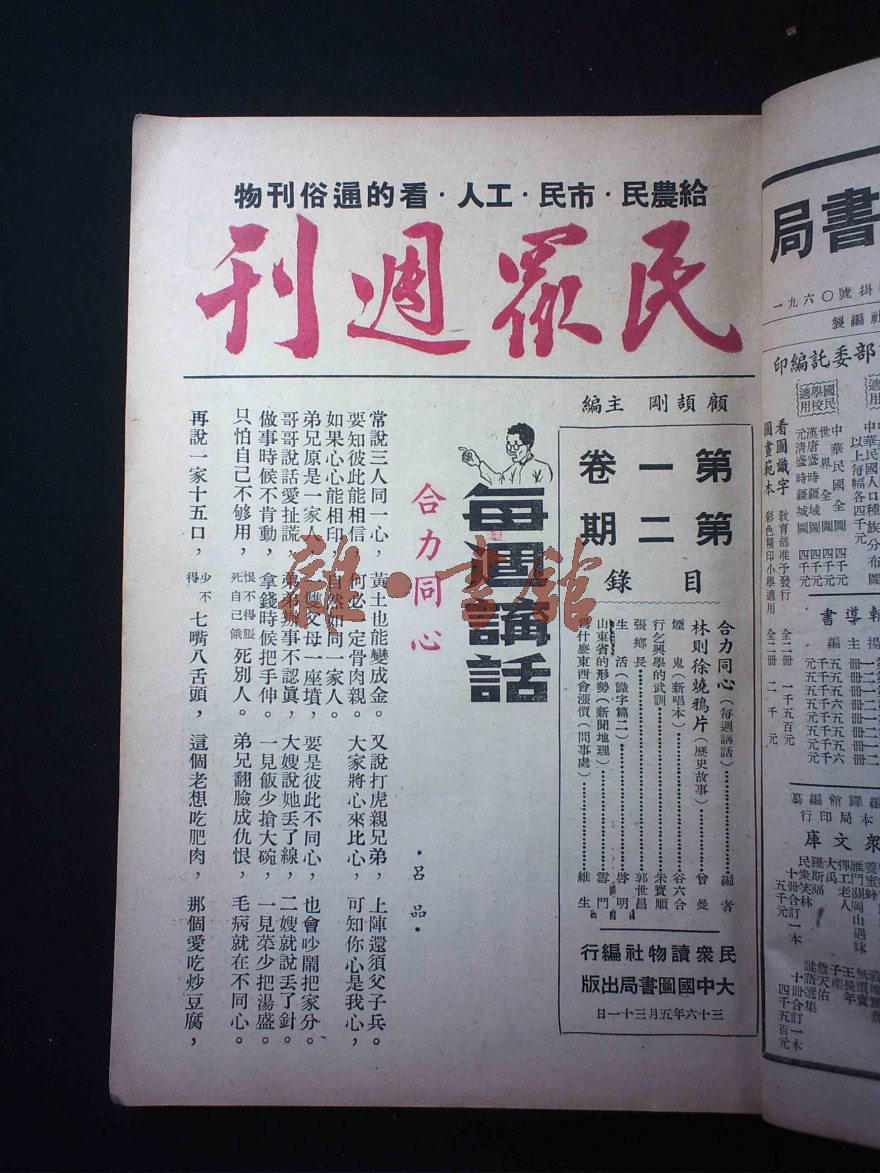 給農民·市民·工人·看的通俗刊物
民眾週刊
顧頡剛 主編
第一卷
第二期
目錄
合力同心(每週講話)……編者
林則徐燒鴉片(歷史故事)……曾奐
煙鬼(新唱本)……谷六合
行乞興學的武訓……朱寶順
張鄉長……郭世昌
生活(識字篇二)……啓明
山東省的形勢(新聞地理)……雲門
爲什麼東西會漲價(問事處)……維生
民眾讀物社編行
大中國圖書局出版
三十六年五月三十一日
每週講話
合力同心
·呂品·
常說三人同一心,黃土也能變成金。又說打虎親兄弟,上陣還須父子兵。
要知彼此能相信,何必一定骨肉親。大家將心來比心,可知你心是我心,
如果心心能相印,自然如同一家人。
弟兄原是一家人,一雙父母一座墳,要是彼此不同心,也會吵鬧把家分。
哥哥說話愛扯謊,弟弟辦事不認眞,大嫂說她丟了線,二嫂就說丟了針。
做事時候不肯動,拿錢時候把手伸。一見飯少搶大碗,一見菜少把湯盛。
只怕自己不够用,恨不得服死自己餓死別人。弟兄翻臉成仇恨,毛病就在不同心。
再說一家十五口,少不得七嘴八舌頭,這個老想吃肥肉,那個愛吃炒豆腐,
雜·書館
書局
掛號〇六九一
社編製
部委託編印
國民學校適用
適用
中華民國人口種族分布圖
以上每幅各四千元
中華民國全圖 四千元
世界全圖 四千元
漢唐盛時疆域圖 四千元
元清盛時疆域圖 四千元
看圖識字 教育部准予發行 全二冊 一千五百元
圖畫範本 彩色精印小學適用 全二冊 二千元
輔導書
主編
編譯館編纂
本局印行
眾文庫
養蜜蜂
雁門關岡山遇妹
彈工老人
大禹
羅斯福
民眾笑林
十冊合訂一本
五千元
無價寶
王長年
子產
詹天佑
謎語選集
十冊合訂一本
四千五百元